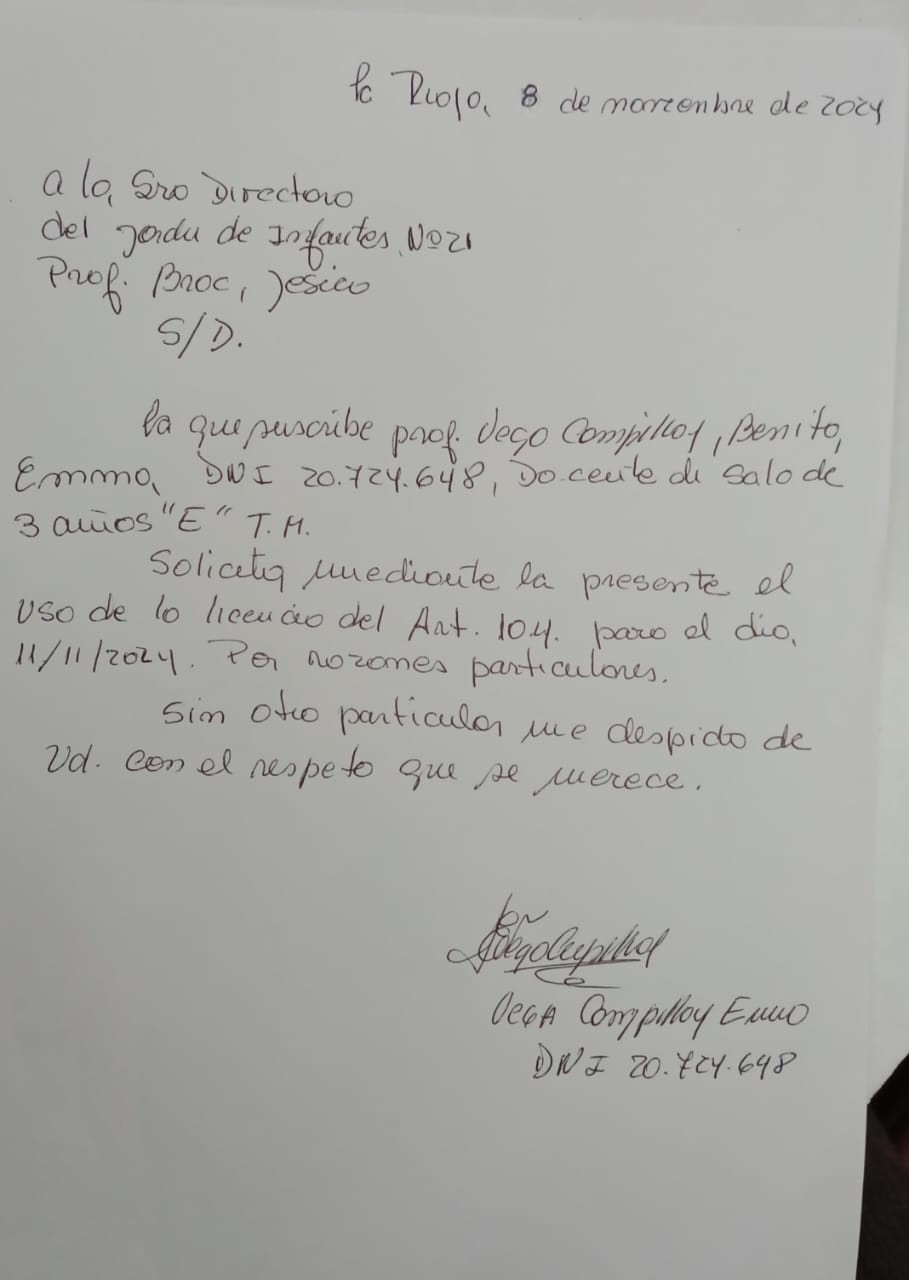 La Rioja, 8 de noviembre de 2024
a la, Sra Directora
del Jardin de Infantes Nº21
Prof. Broc, Jesica
S/D.
La que suscribe prof. Vega Campillay, Benita,
Emma, DNI 20.724.648, Docente de Sala de
3 años "E" T.M.
Solicita mediante la presente el
uso de la licencia del Art. 104. para el dia,
11/11/2024. Por razones particulares.
Sin otro particular me despido de
Ud. con el respeto que se merece.
VEGA Campillay Emma
DNI 20.724.648